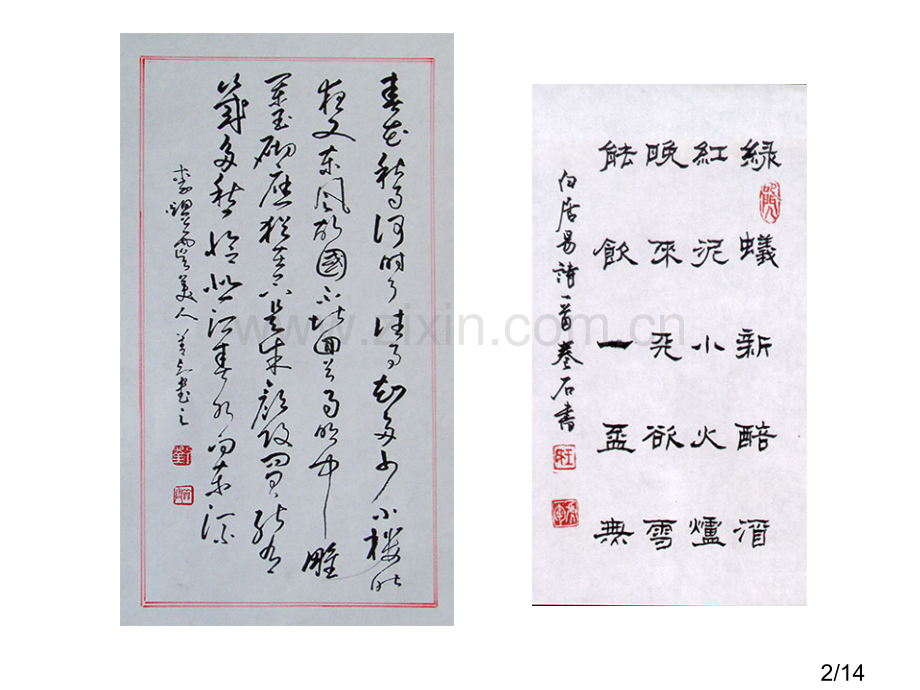 春花秋月何时了往事知多少小楼昨
夜又东风故國不堪回首月明中雕
玉砌应犹在只是朱颜改问君能有
几多愁恰似一江春水向东流
李煜虞美人 書之
綠蟻新醅酒
紅泥小火爐
晚來天欲雪
能飲一盃無
白居易詩一首 石書
www.zixin.com.cn
2/14